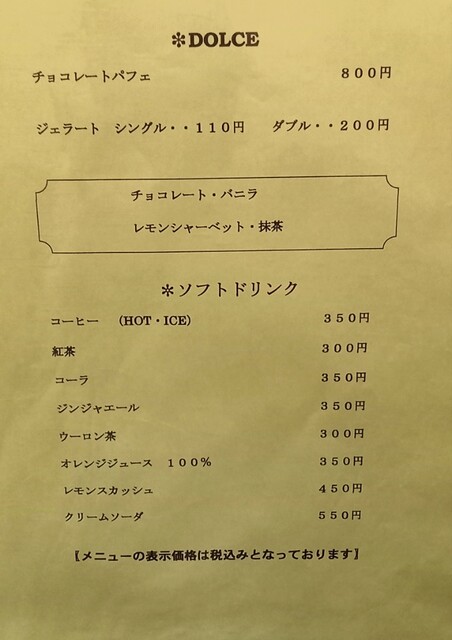 ＊DOLCE
チョコレートパフェ　８００円
ジェラート　シングル・・１１０円　ダブル・・２００円
チョコレート・バニラ
レモンシャーベット・抹茶
＊ソフトドリンク
コーヒー　（HOT・ICE）　３５０円
紅茶　３００円
コーラ　３５０円
ジンジャエール　３５０円
ウーロン茶　３００円
オレンジジュース　１００％　３５０円
レモンスカッシュ　４５０円
クリームソーダ　５５０円
【メニューの表示価格は税込みとなっております】